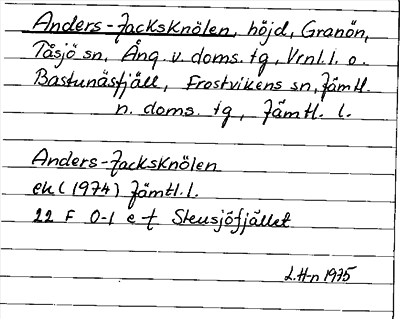 Anders-Jacksknölen, höjd, Granön,
Tåsjö sn, Ång. v. doms. tg, Vrnl. l. o.
Bastunäsfjäll, Frostvikens sn, Jämtl.
n. doms. tg, Jämtl. l.
Anders-Jacksknölen
ek (1974) Jämtl. l.
22 F 0-1 e-f Stensjöfjället
L.H-n 1975